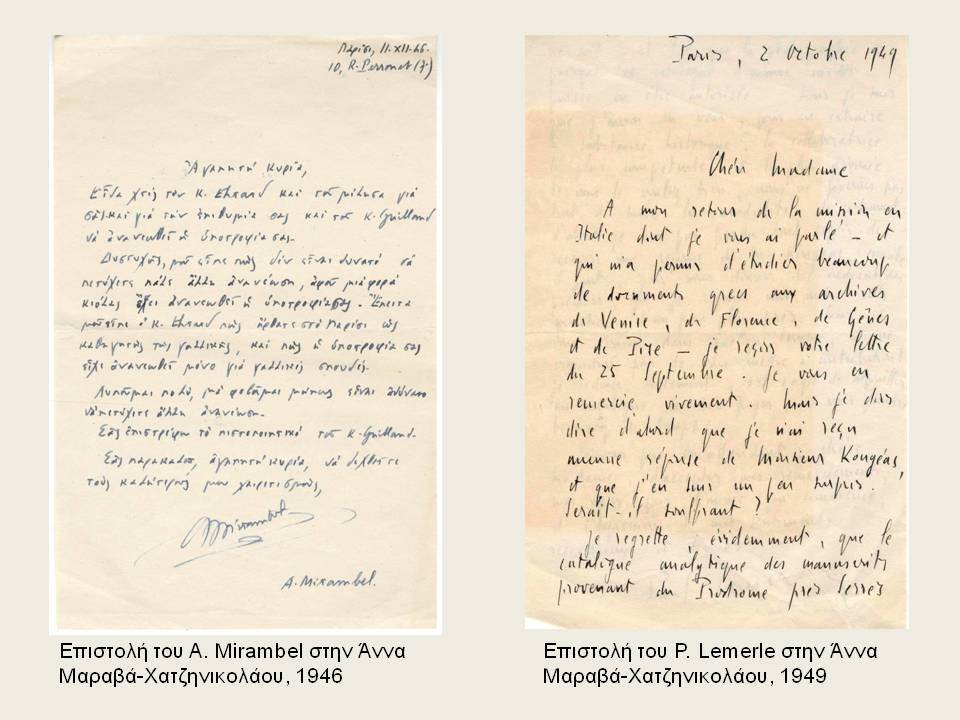 Παρίσι, 11-XII-46.
10, R. Perronet (7)
Ἀγαπητὴ κυρία,
Εἶδα χτὲς τὸν κ. Ehrard καὶ τοῦ μίλησα γιὰ
σᾶς καὶ γιὰ τὴν ἐπιθυμία σας καὶ τοῦ κ. Guilland
νὰ ἀνανεωθεῖ ἡ ὑποτροφία σας.
Δυστυχῶς, μοῦ εἶπε πὼς δὲν εἶναι δυνατὸ νὰ
πετύχετε πάλι ἄλλη ἀνανέωση, ἀφοῦ μιὰ φορὰ
κιόλας ἔχει ἀνανεωθεῖ ἡ ὑποτροφία σας. Ἔπειτα
μοῦ εἶπε ὁ κ. Ehrard πὼς ἤρθατε στὸ Παρίσι ὡς
καθηγητὴς τῆς γαλλικῆς, καὶ πὼς ἡ ὑποτροφία σας
εἶχε ἀνανεωθεῖ μόνο γιὰ γαλλικὲς σπουδές.
Λυποῦμαι πολύ, μὰ φοβᾶμαι μήπως εἶναι ἀδύνατο
νὰ πετύχετε ἄλλη ἀνανέωση.
Σᾶς ἐπιστρέφω τὸ πιστοποιητικὸ τοῦ κ. Guilland.
Σᾶς παρακαλῶ, ἀγαπητὴ κυρία, νὰ δεχθεῖτε
τοὺς καλύτερούς μου χαιρετισμούς,
AMirambel
A. Mirambel.
Επιστολή του A. Mirambel στην Άννα
Μαραβά-Χατζηνικολάου, 1946
Paris, 2 Octobre 1949
Chère Madame
A mon retour de la mission en
Italie dont je vous ai parlé – et
qui m'a permis d'étudier beaucoup
de documents grecs aux archives
de Venise, de Florence, de Gênes
et de Pise – je reçois votre lettre
du 25 Septembre. Je vous en
remercie vivement. Mais je dois
dire d'abord que je n'ai reçu
aucune réponse de Monsieur Kougéas,
et que j'en suis un peu surpris.
Serait-il souffrant ?
Je regrette, évidemment, que le
catalogue analytique des manuscrits
provenant du Prodrome près Serrès
Επιστολή του P. Lemerle στην Άννα
Μαραβά-Χατζηνικολάου, 1949